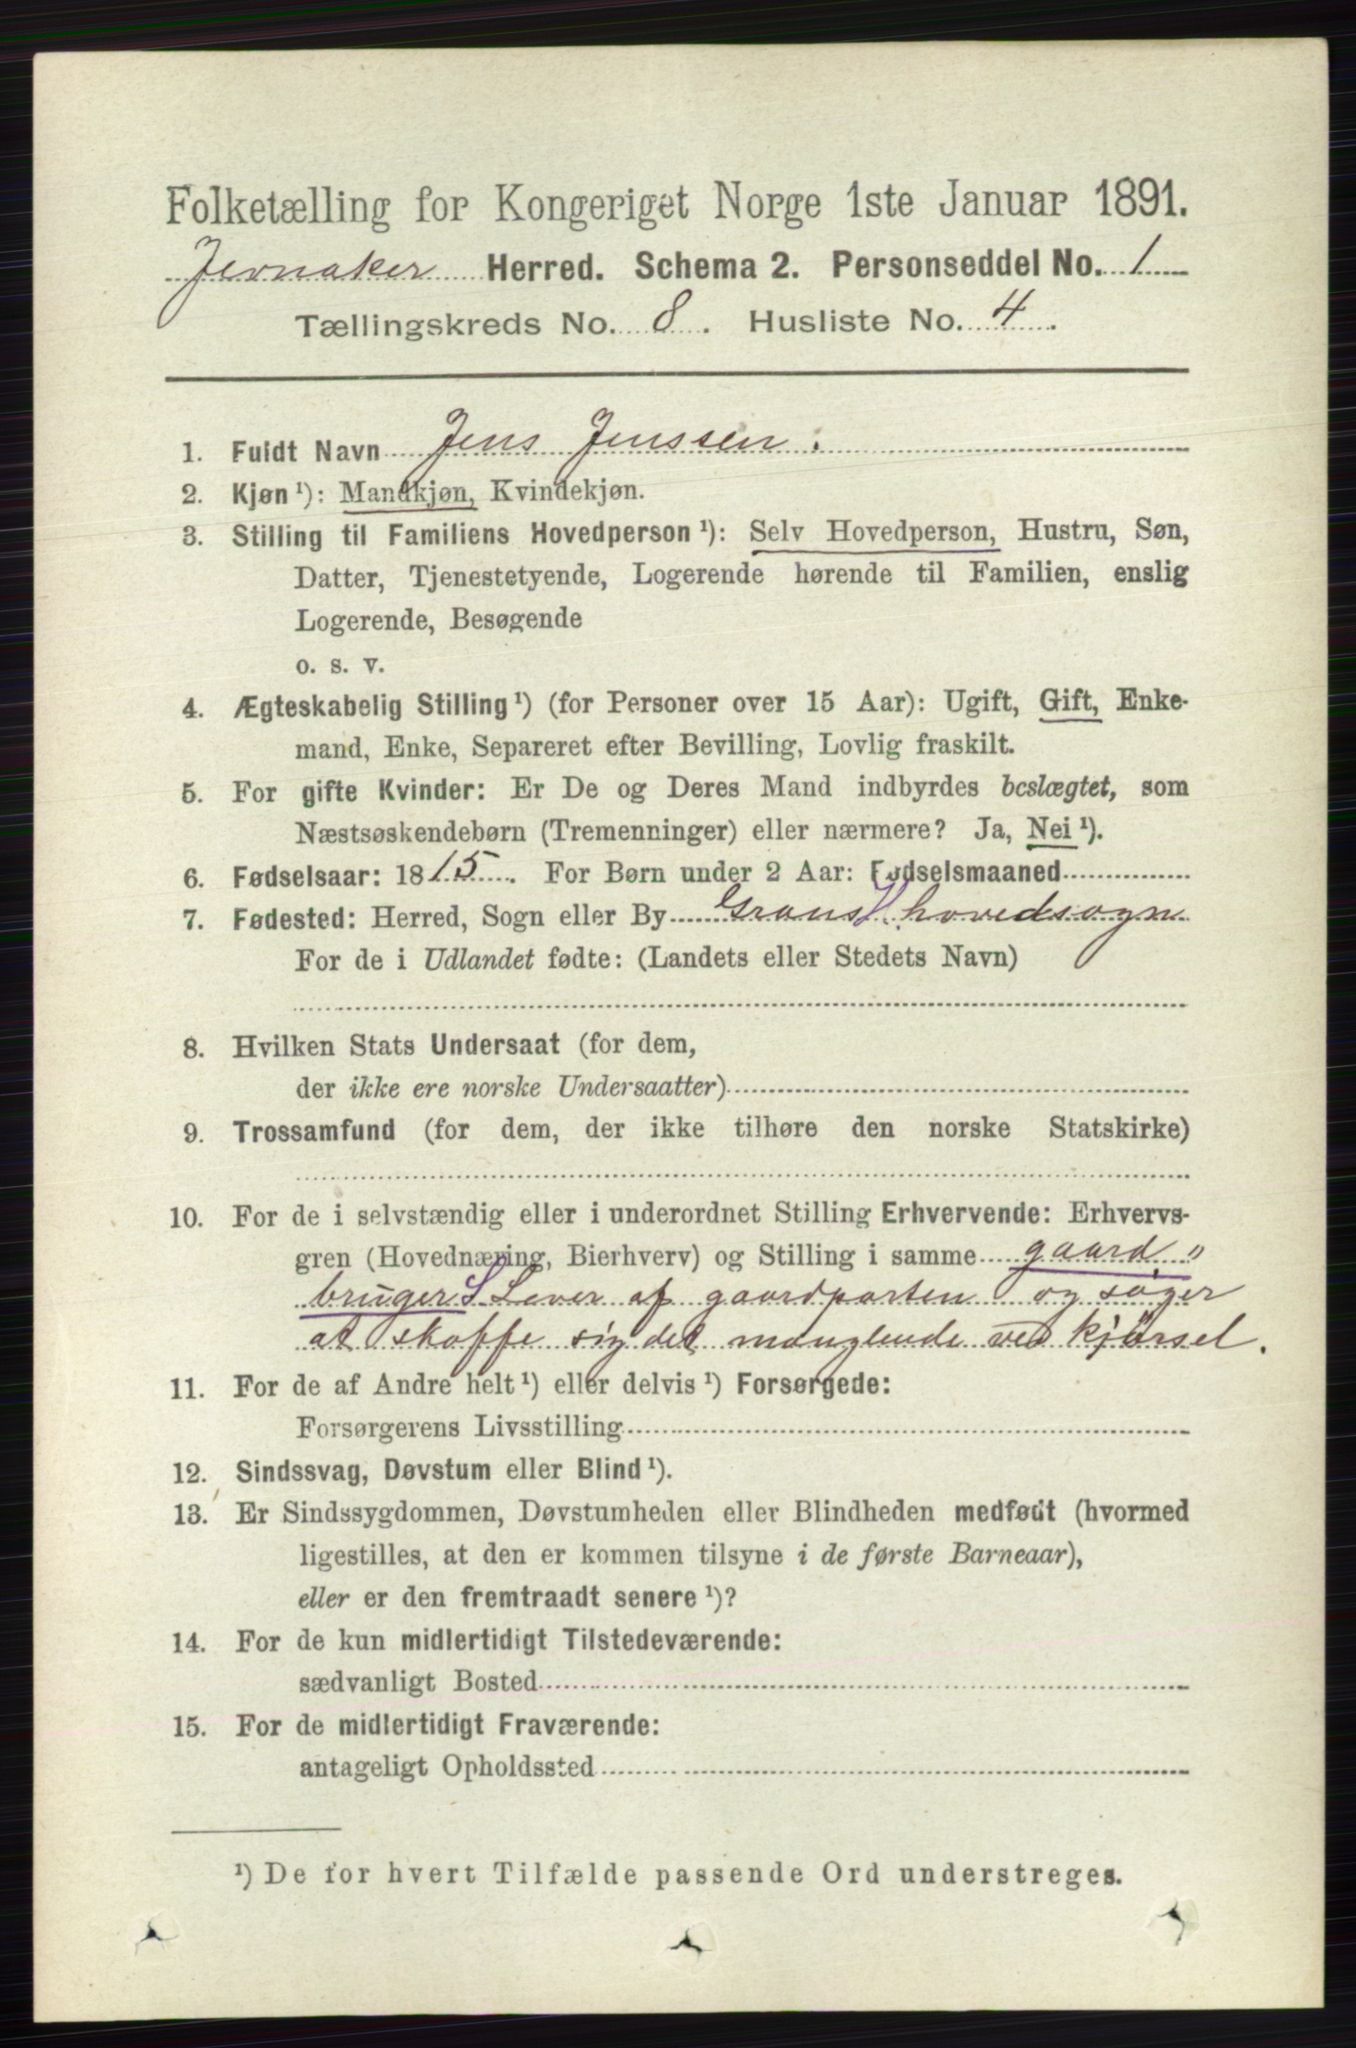 Folketælling for Kongeriget Norge 1ste Januar 1891.
Jevnaker Herred. Schema 2. Personseddel No. 1
Tællingskreds No. 8. Husliste No. 4.
1. Fuldt Navn Jens Jenssen.
2. Kjøn ¹): Mandkjøn, Kvindekjøn.
3. Stilling til Familiens Hovedperson ¹): Selv Hovedperson, Hustru, Søn,
Datter, Tjenestetyende, Logerende hørende til Familien, enslig
Logerende, Besøgende
o. s. v.
4. Ægteskabelig Stilling ¹) (for Personer over 15 Aar): Ugift, Gift, Enke-
mand, Enke, Separeret efter Bevilling, Lovlig fraskilt.
5. For gifte Kvinder: Er De og Deres Mand indbyrdes beslægtet, som
Næstsøskendebørn (Tremenninger) eller nærmere? Ja, Nei ¹).
6. Fødselsaar: 1815. For Børn under 2 Aar: Fødselsmaaned
7. Fødested: Herred, Sogn eller By Grans hovedsogn
For de i Udlandet fødte: (Landets eller Stedets Navn)
8. Hvilken Stats Undersaat (for dem,
der ikke ere norske Undersaatter)
9. Trossamfund (for dem, der ikke tilhøre den norske Statskirke)
10. For de i selvstændig eller i underordnet Stilling Erhvervende: Erhvervs-
gren (Hovednæring, Bierhverv) og Stilling i samme gaard "
bruger S Lever af gaardparten og søger
at skaffe sig det manglende ved kjørsel.
11. For de af Andre helt ¹) eller delvis ¹) Forsørgede:
Forsørgerens Livsstilling
12. Sindssvag, Døvstum eller Blind ¹).
13. Er Sindssygdommen, Døvstumheden eller Blindheden medfødt (hvormed
ligestilles, at den er kommen tilsyne i de første Barneaar),
eller er den fremtraadt senere ¹)?
14. For de kun midlertidigt Tilstedeværende:
sædvanligt Bosted
15. For de midlertidigt Fraværende:
antageligt Opholdssted
¹) De for hvert Tilfælde passende Ord understreges.